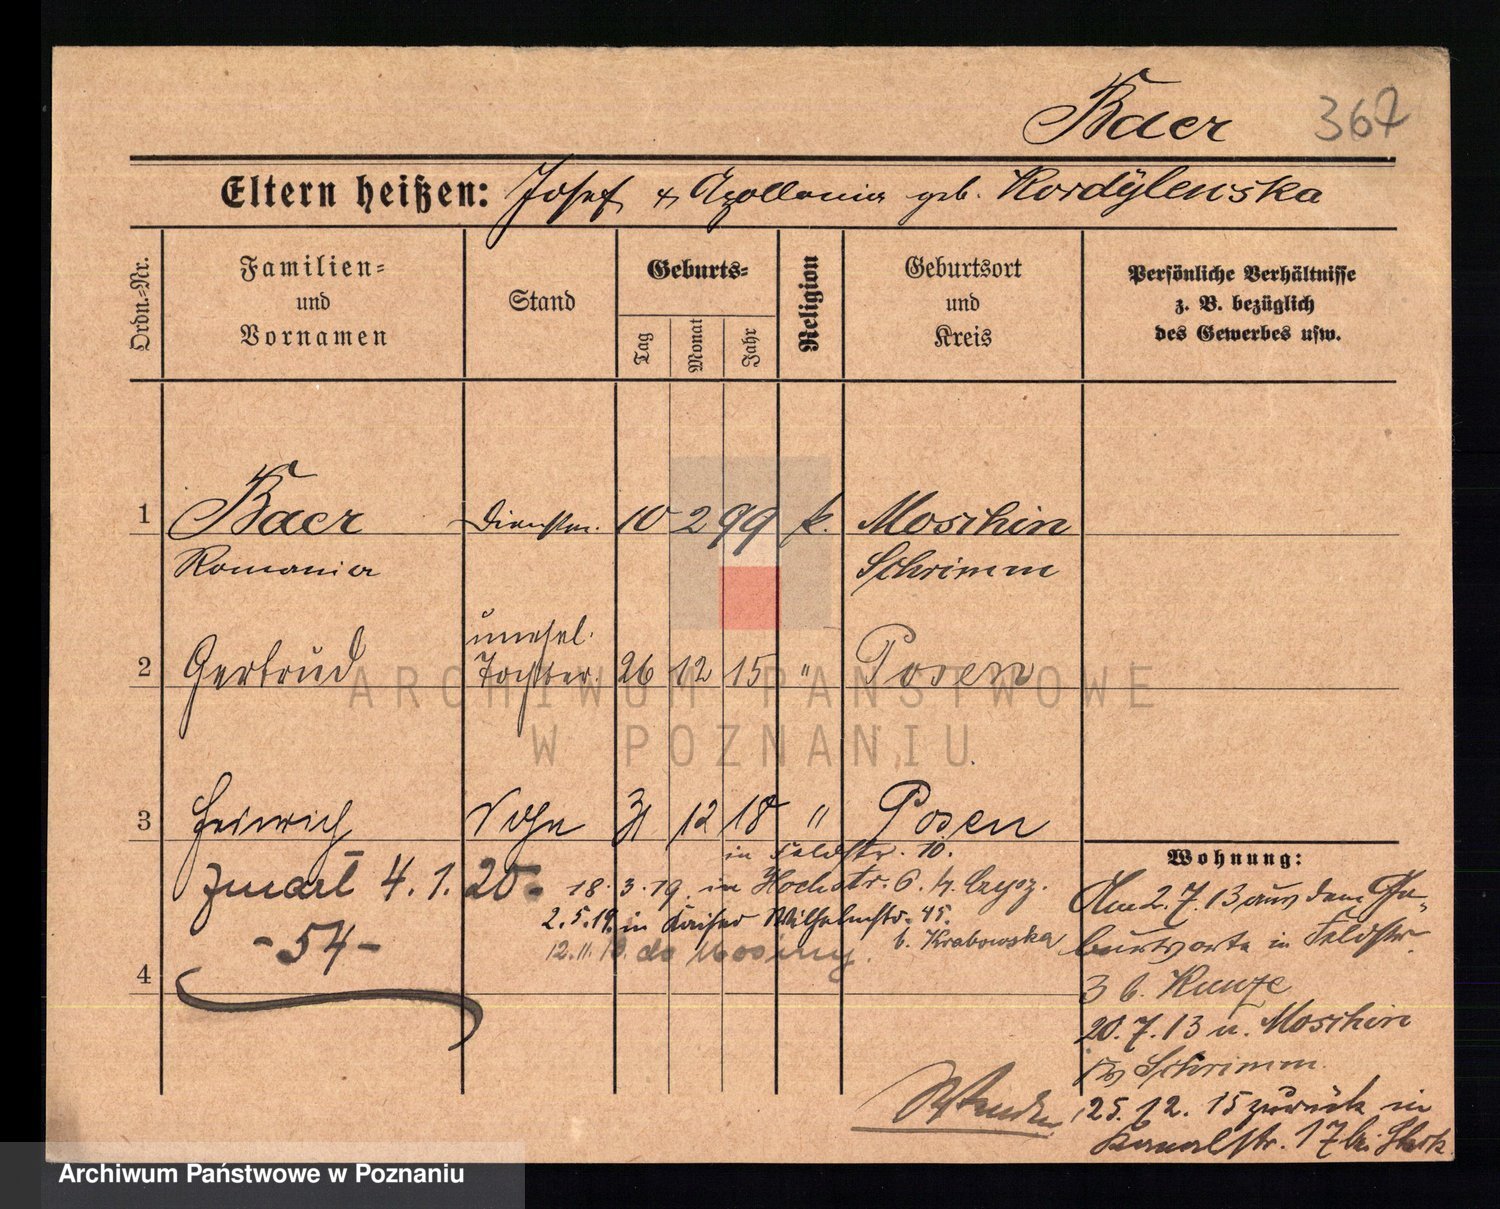 Baer 367
Eltern heißen: Josef & Apollonia geb. Kordylewska
Ordn.-Nr.
Familien-
und
Vornamen
Stand
Geburts-
Tag
Monat
Jahr
Religion
Geburtsort
und
Kreis
Persönliche Verhältnisse
z. B. bezüglich
des Gewerbes usw.
1 Baer Dienstm. 10 2 99 k. Moschin
Romania Schrimm
unehel.
2 Gertrud Tochter 26 12 15 " Posen
ARCHIWUM PAŃSTWOWE
W POZNANIU
3 Heinrich Sohn 31 12 18 " Posen
in Feldstr. 10.
zmarł 4.1.20-
18.3.19. in Hochstr. 6.
2.5.19. in Kaiser Wilhelmstr. 45.
b. Krabowska
-54-
do Mosiny.
4
Wohnung:
Am 2.7.13 aus dem Ge-
burtsorte in Feldstr.
3 b. Kunze
20.7.13 n. Moschin
Schrimm
25.12.15 zurück in
Kanalstr. 17 bei
Archiwum Państwowe w Poznaniu